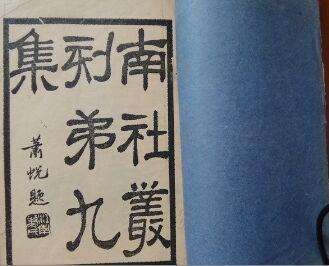 南社叢
刻弟九
集
蕭蜕題